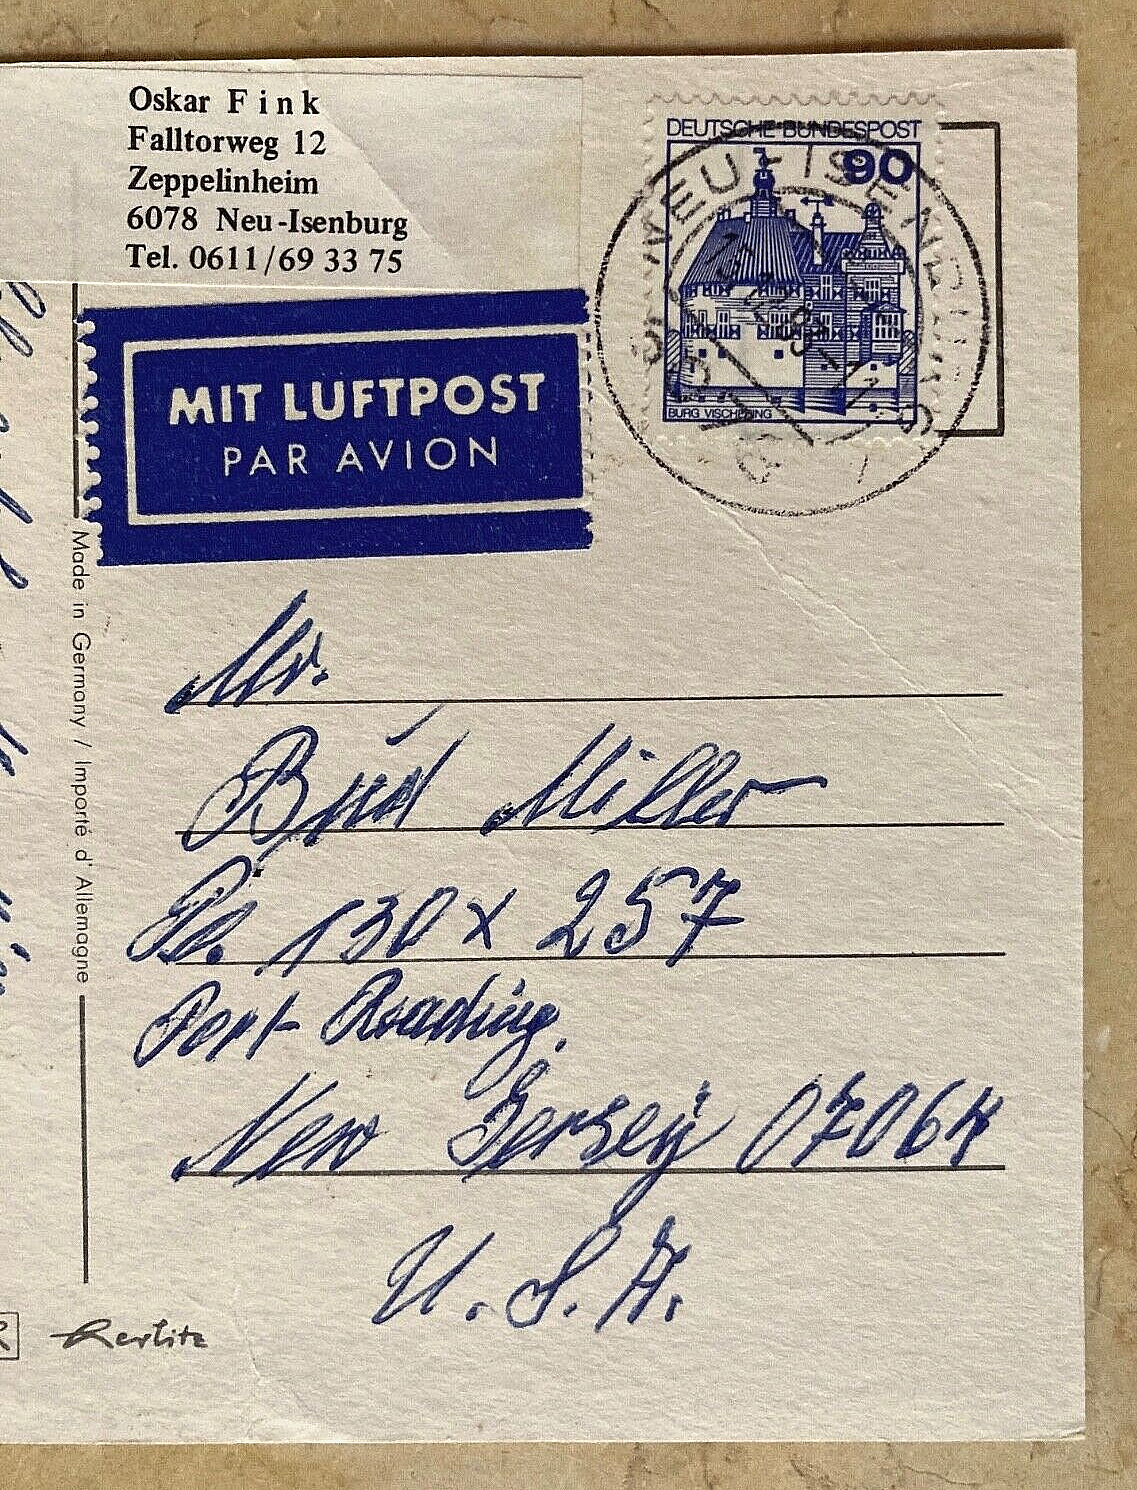 Oskar Fink
Falltorweg 12
Zeppelinheim
6078 Neu-Isenburg
Tel. 0611/69 33 75
DEUTSCHE BUNDESPOST
90
BURG VISCHERING
NEU-ISENBURG
MIT LUFTPOST
PAR AVION
Made in Germany / Importé d'Allemagne
Mr.
Bud Miller
130 x 257
Port Reading,
New Jersey 07064
U.S.A.